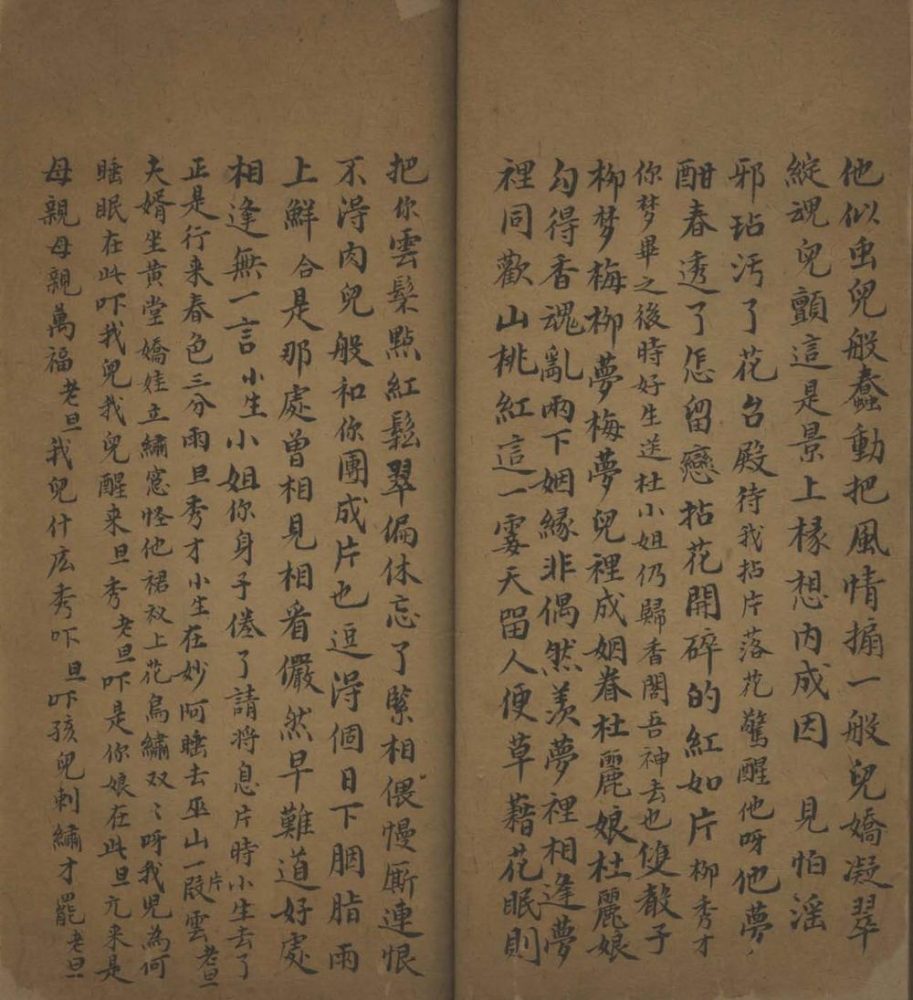 他似虫兒般蠢動把風情搧一般兒嬌凝翠
綻魂兒顫這是景上椽想内成因　見怕淫
邪玷污了花台殿待我拈片落花驚醒他呀他夢
酣春透了怎留戀拈花開碎的紅如片柳秀才
你梦畢之後時好生送杜小姐仍歸香閣吾神去也雙𣪚子
柳梦梅柳夢梅夢兒裡成姻眷杜麗娘杜麗娘
勾得香魂亂兩下姻緣非偶然羡夢裡相逢夢
裡同歡山桃紅這一霎天留人便草藉花眠則
把你雲髻點紅鬆翠偏休忘了緊相偎慢厮連恨
不淂肉兒般和你團成片也逗淂個日下胭脂雨
上鮮合是那處曾相見相看儼然早難道好處
相逢無一言小生小姐你身子倦了請將息片時小生去了
正是行来春色三分雨旦秀才小生在妙阿睡去巫山一片段雲老旦
夫婿坐黄堂嬌娃立繡窓怪他裙衩上花鳥繡双〻呀我兒為何
睡眠在此吓我兒我兒醒来旦秀老旦吓是你娘在此旦亢来是
母親母親萬福老旦我兒什庅秀吓旦吓孩兒刺繡才罷老旦